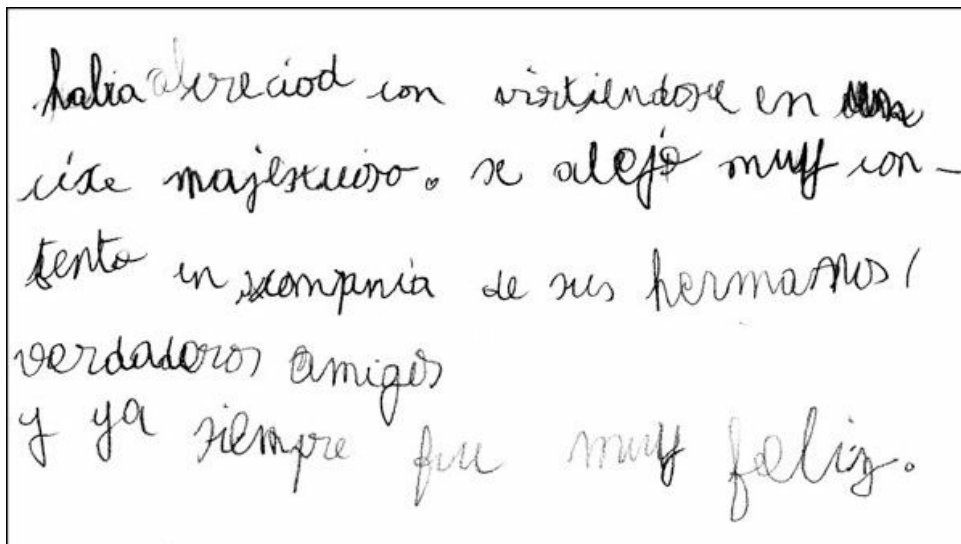 habia creciod con virtiendose en un
cisne majestuoso. se alejó muy con-
tento en compania de sus hermanos/
verdaderos amigos
y ya siempre fue muy feliz.